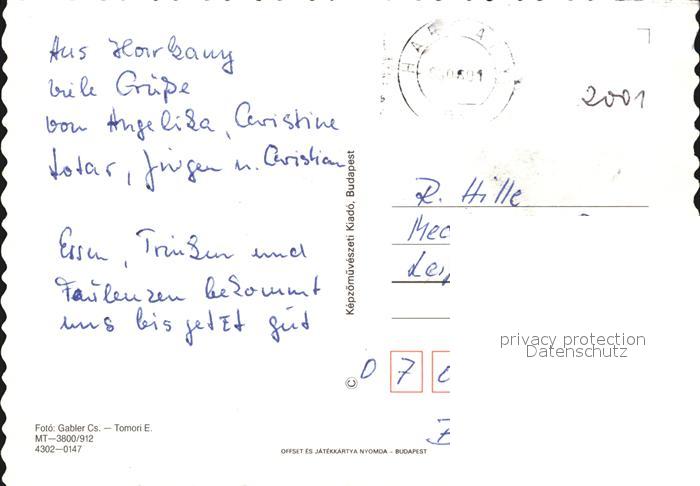 Aus Harkany
viele Grüße
von Angelika, Christine
Lotar, Jürgen u. Christian
Essen, Trinken und
Faulenzen bekommt
uns bis jetzt gut
Fotó: Gabler Cs. — Tomori E.
MT—3800/912
4302—0147
Képzőművészeti Kiadó, Budapest
©
OFFSET ÉS JÁTÉKKÁRTYA NYOMDA - BUDAPEST
2001
R. Hille
0 7
privacy protection
Datenschutz